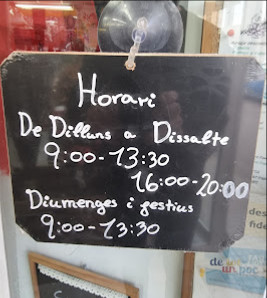 Horari
De Dilluns a Dissabte
9:00-13:30
16:00-20:00
Diumenges i festius
9:00-13:30
de
un poc